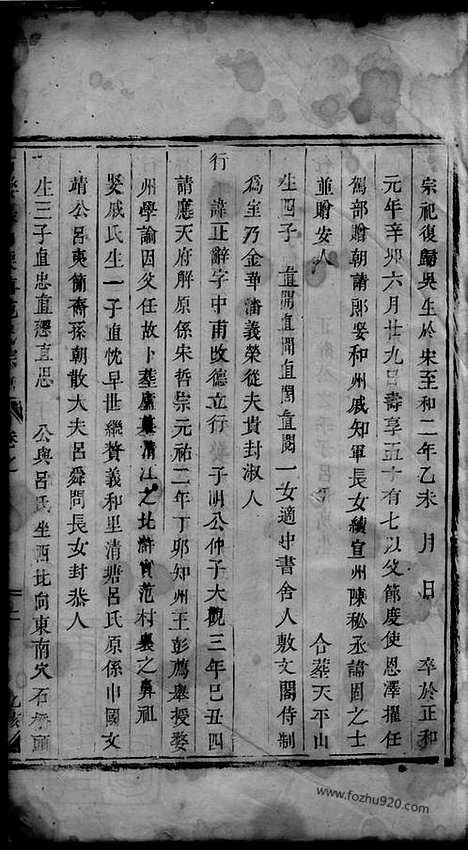 宗祀復歸吳生於宋至和二年乙未 月 日 卒於正和
元年辛卯六月廿九日壽享五十有七以父節度使恩澤擢任
駕部贈朝請郎娶和州戚知軍長女續宣州陳秘丞諱固之士
並贈安人 合葬天平山
生四子 直 直 直 直 一女適中書舍人敷文閣侍制
為室乃金華潘義榮從夫貴封淑人
行 諱正辭字中甫改德立行 子明公仲子大觀三年巳丑四
請應天府解原係宋哲宗元祐二年丁卯知州王彭薦舉授婺
州學諭因父任故卜葬 清江之北滸實范村 之鼻祖
娶戚氏生一子直忱早世繼贅義和里清塘呂氏原係申國文
靖公呂夷簡裔孫朝散大夫呂舜問長女封恭人
生三子直忠直 直思 公與呂氏坐西北向東南穴石 頭
www.fozhu920.com